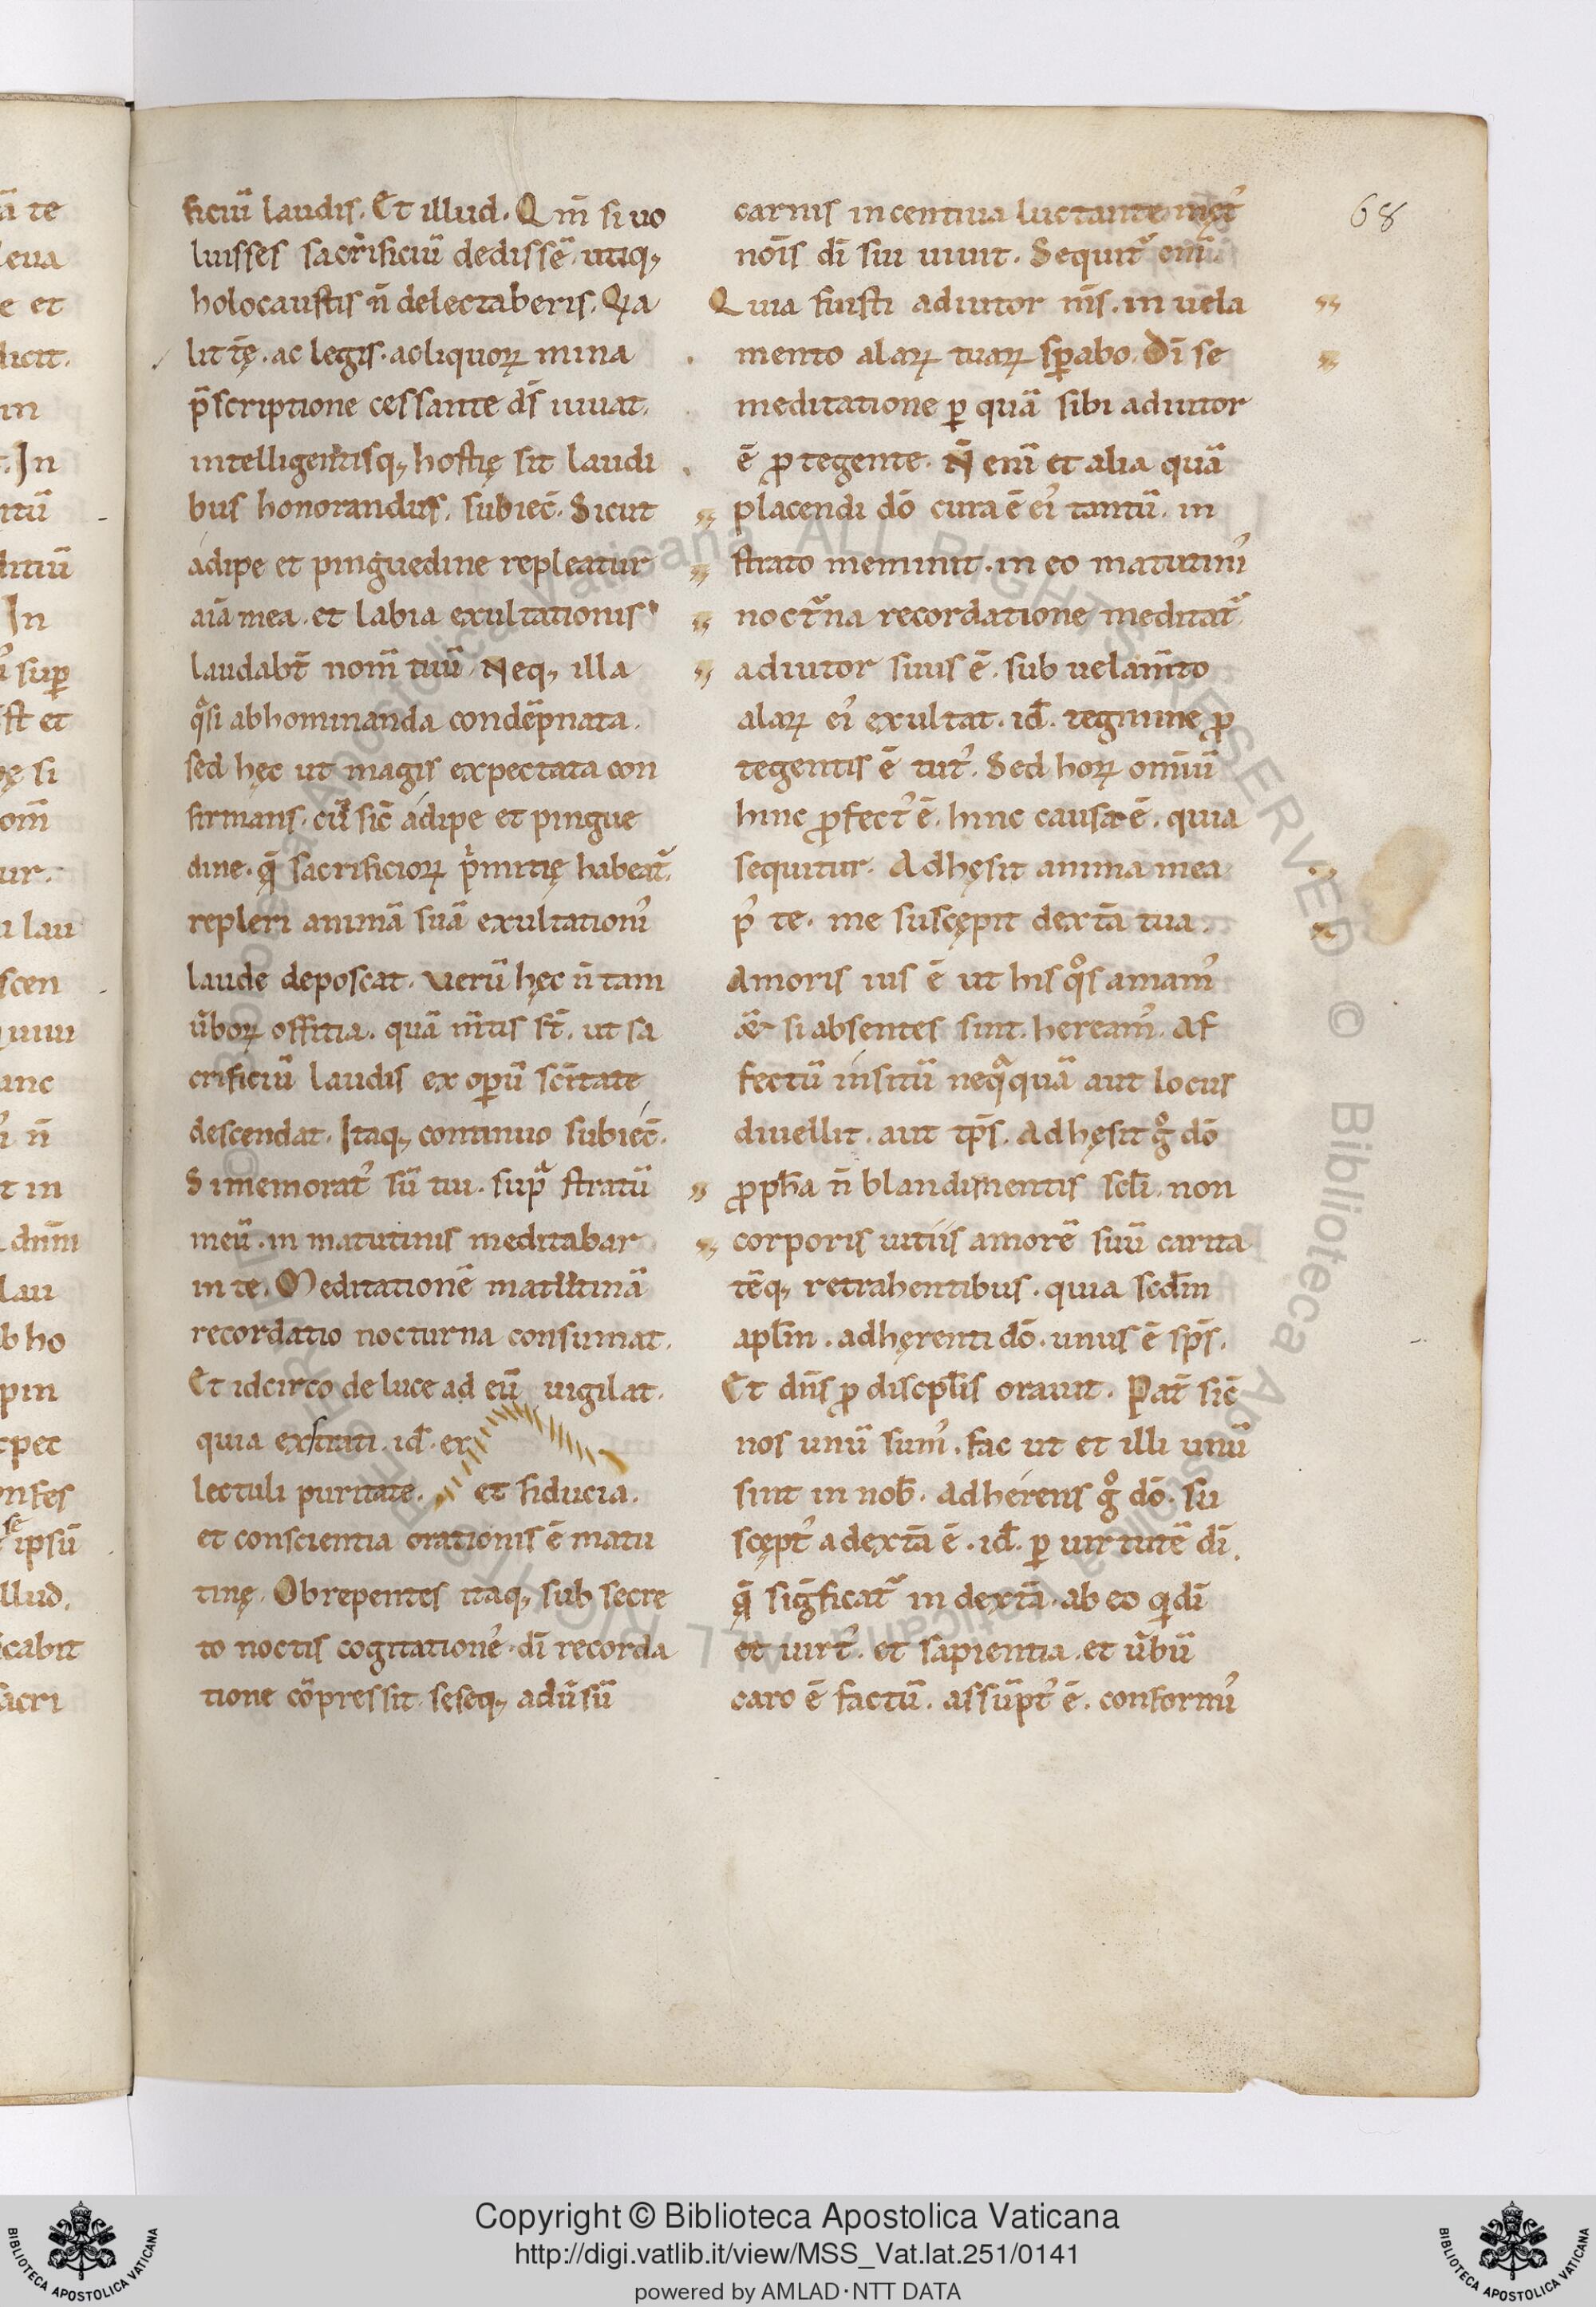 ficiū laudis. Et illud. Qm̄ si uo
luisses sacrificiū dedissē utiq;
holocaustis n̄ delectaberis. Q̨a
lit tę̄. ac legis. ac liquoꝝ mina
p̄scriptione cessante ds̄ iuuat.
intelligentisq; hostię sit laudi
bus honorandus. subiec̄. Sicut
adipe et pinguedine repleatur
aīa mea. et labia exultationis
laudabt̄ nom̄ tuū. Neq; illa
q̄si abhominanda condēpnata.
sed hęc ut magis expectata con
firmans. cū sic̄ adipe et pingue
dine. q̄ sacrificioꝝ p̄mitię habeat᷑.
repleri animā suā exultationiꝰ
laude deposcat. Verū hęc n̄ tam
ūboꝝ offitia. quā m̄tis st̄. ut sa
crificiū laudis ex opeꝝū sc̄itate
descendat. Itaq; continuo subiec̄.
Si memoratꝰ sū tui. sup̄ stratū
meū. in matutinis meditabar
in te. Meditationē matutinā
recordatio nocturna consumat.
Et idcirco de luce ad eū uigilat.
quia ex strati. id̄. ex
lectuli puritate. et fiducia.
et conscientia orationis ē matu
tinę. Obrepentes itaq; sub secre
to noctis cogitationeꝰ. dī recorda
tione cōpressit. seseq; adūsū
carnis incentiua luctante
nōis dī siu uiuit. Sequit᷑ enī
Quia fuisti adiutor m̄s. in uela
mento alaꝝ tuaꝝ sꝑabo. Dī se
meditatione ꝑ quā sibi adiutor
ē ꝓtegente. N̄ enī et alia quā
placendi dō cura ē eiꝰ tantū. in
strato meminit. in eo matutiniꝰ
noct᷑na recordatione meditat᷑
adiutor suus ē. sub uelam̄to
alaꝝ eiꝰ exultat. id̄. tegmine ꝓ
tegentis ē tutꝰ. Sed hoꝝ omiūū
hinc ꝓfectꝰ ē. hinc causa ē. quia
sequitur. Adhęsit anima mea
pꝰ te. me suscępit dext̄a tua.
Amoris ius ē ut his qͦs amamꝰ
& si absentes sint. hereamꝰ. Af
fectū insitū neqͣquā aut locus
diuellit. aut tp̄s. Adhęsit gͦ dō
ꝓph̄a n̄ blandimentis scl̄i. non
corporis uitiis amorē suū carita
tēq; retrahentibus. quia scd̄m
apl̄m. adhęrenti dō. unus ē sp̄s.
Et dn̄s ꝓ discipl̄is orauit. Pat̄ sic̄
nos unū sumꝰ. fac ut et illi unū
sint in nob̄. Adherens gͦ dō. su
scęptꝰ a dext̄a ē. id̄. ꝑ uirtutē dī.
q̄ siḡficat᷑ in dext̄a. ab eo qi dī
et uirtꝰ. et sapientia. et ūbū
caro ē factū. assūptꝰ ē. conformiꝰ
68
Copyright © Biblioteca Apostolica Vaticana
http://digi.vatlib.it/view/MSS_Vat.lat.251/0141
powered by AMLAD·NTT DATA